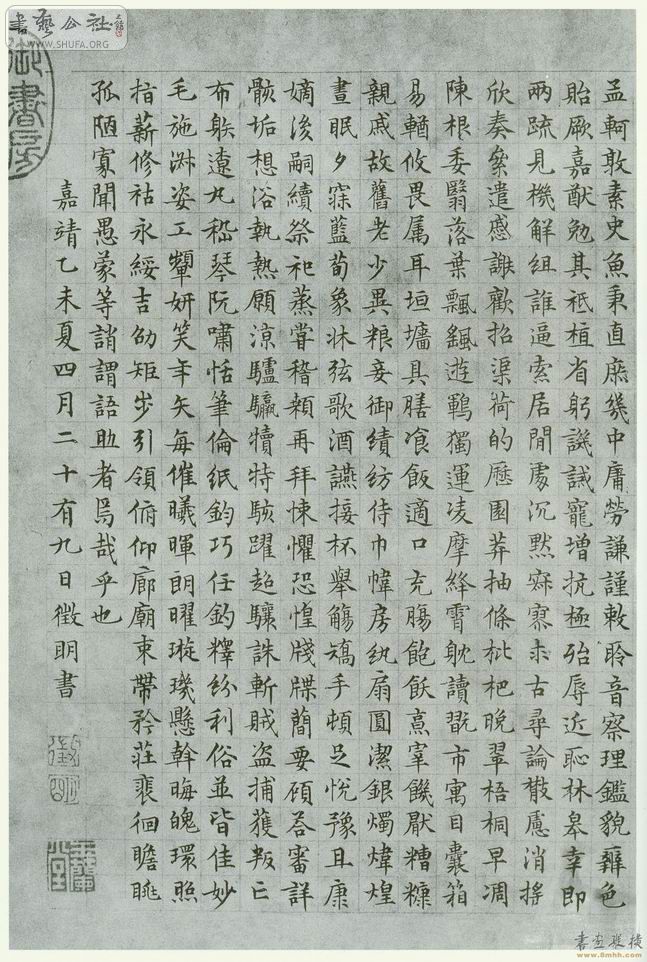 書藝公社
WWW.SHUFA.ORG
御書房
孟軻敦素史魚秉直庶幾中庸勞謙謹敕聆音察理鑑貌辯色
貽厥嘉猷勉其祗植省躬譏誡寵增抗極殆辱近恥林皋幸即
兩疏見機解組誰逼索居閒處沉默寂寥求古尋論散慮消搖
欣奏累遣慼謝歡招渠荷的歷園莽抽條枇杷晚翠梧桐早凋
陳根委翳落葉飄颻遊鵾獨運凌摩絳霄耽讀翫市寓目囊箱
易輶攸畏属耳垣墻具膳飡飯適口充腸飽飫烹宰饑厭糟糠
親戚故舊老少異粮妾御績紡侍巾帷房紈扇圓潔銀燭煒煌
晝眠夕寐藍筍象牀弦歌酒讌接杯舉觴矯手頓足悅豫且康
嫡後嗣續祭祀蒸嘗稽顙再拜悚懼恐惶牋牒簡要顧答審詳
骸垢想浴執熱願涼驢騾犢特駭躍超驤誅斬賊盜捕獲叛亡
布射遼丸嵇琴阮嘯恬筆倫紙鈞巧任釣釋紛利俗並皆佳妙
毛施淑姿工顰妍笑年矢每催曦暉朗曜璇璣懸斡晦魄環照
指薪修祜永綏吉劭矩步引領俯仰廊廟束帶矜莊裴徊瞻眺
孤陋寡聞愚蒙等誚謂語助者焉哉乎也
嘉靖乙未夏四月二十有九日徵明書
徵明
書畫縱橫
www.8mhh.com